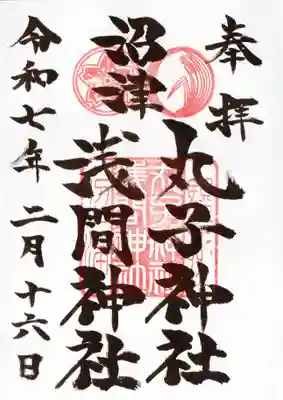 奉拝
沼津
丸子神社
浅間神社
令和七年二月十六日